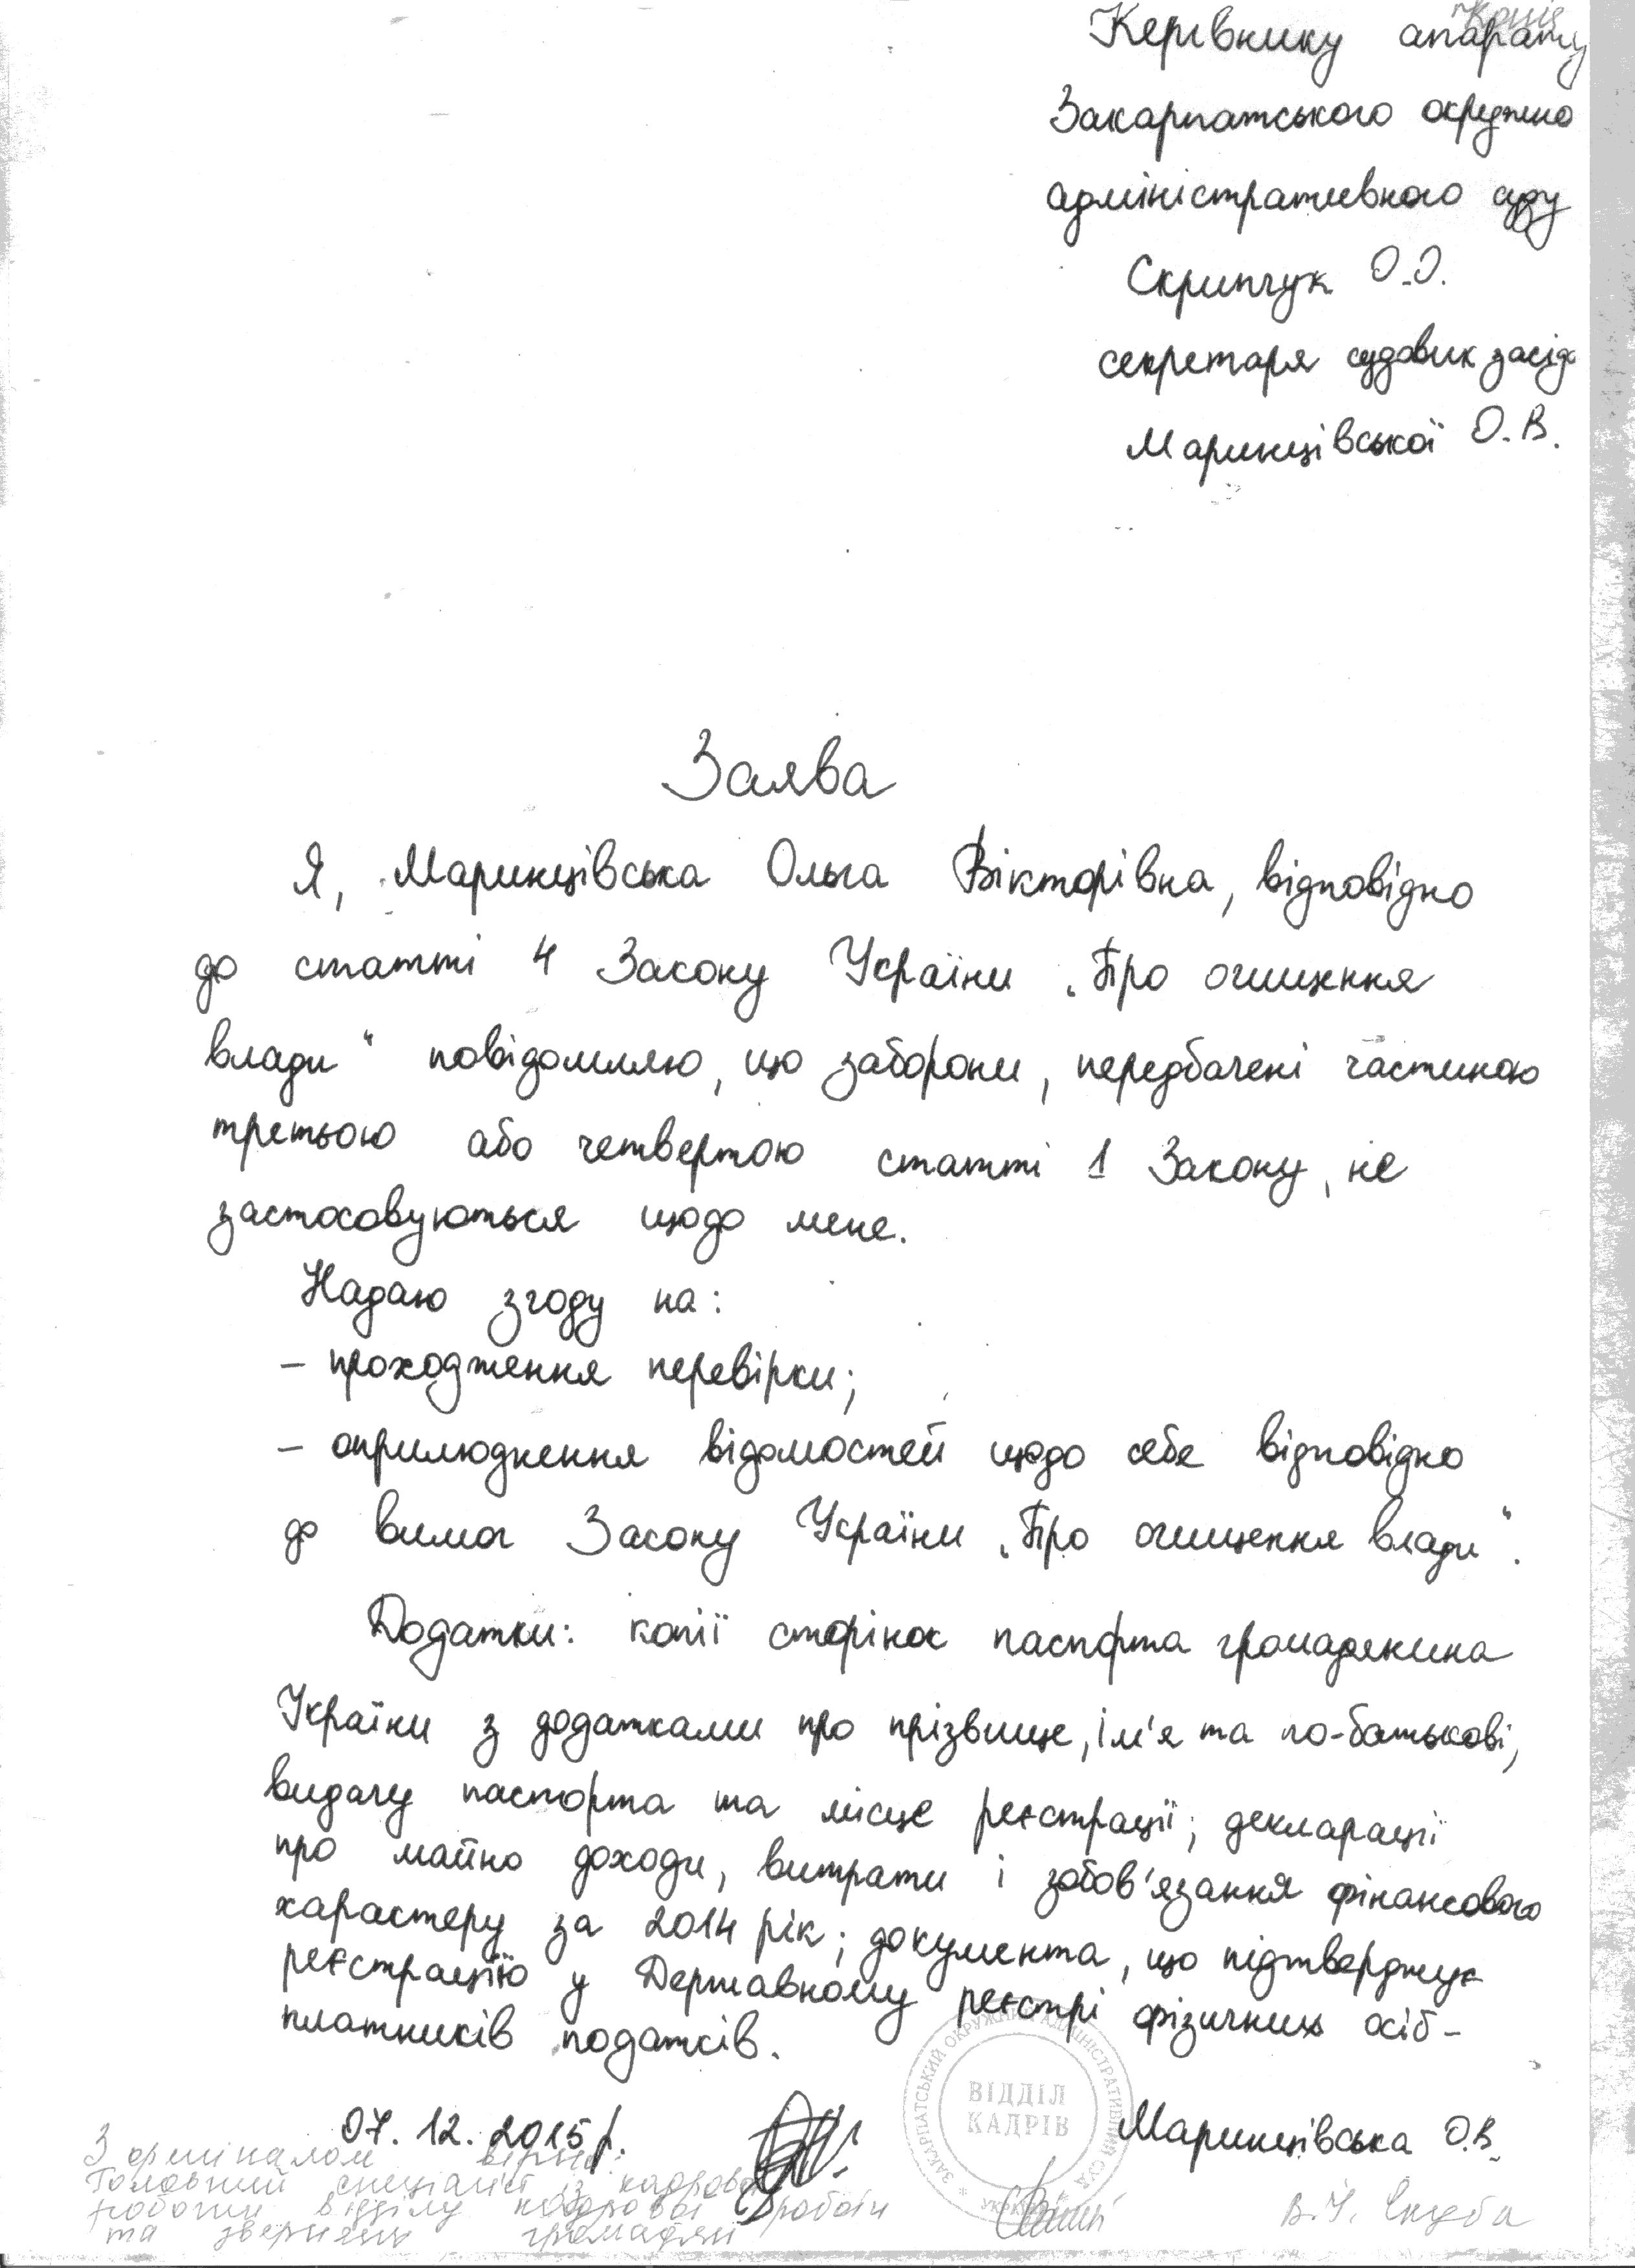 Копія
Керівнику апарату
Закарпатського окружно
адміністративного суду
Скрипчук О.О.
секретаря судових засід
Маринцівської О.В.
Заява
Я, Маринцівська Ольга Вікторівна, відповідно
до статті 4 Закону України „Про очищення
влади" повідомляю, що заборони, передбачені частиною
третьою або четвертою статті 1 Закону, не
застосовуються щодо мене.
Надаю згоду на:
- проходження перевірки;
- оприлюднення відомостей щодо себе відповідно
до вимог Закону України „Про очищення влади".
Додатки: копії сторінок паспорта громадянина
України з додатками про прізвище, ім'я та по-батькові,
видачу паспорта та місце реєстрації; декларації
про майно доходи, витрати і зобов'язання фінансового
характеру за 2014 рік; документа, що підтверджує
реєстрацію у Державному реєстрі фізичних осіб-
платників податків.
07.12.2015р. Маринцівська О.В.
ЗАКАРПАТСЬКИЙ ОКРУЖНИЙ АДМІНІСТРАТИВНИЙ СУД
* УКРАЇНА *
ВІДДІЛ
КАДРІВ
З оригіналом вірно:
Головний спеціаліст із кадрової
роботи відділу кадрової роботи
та звернень громадян В.І.